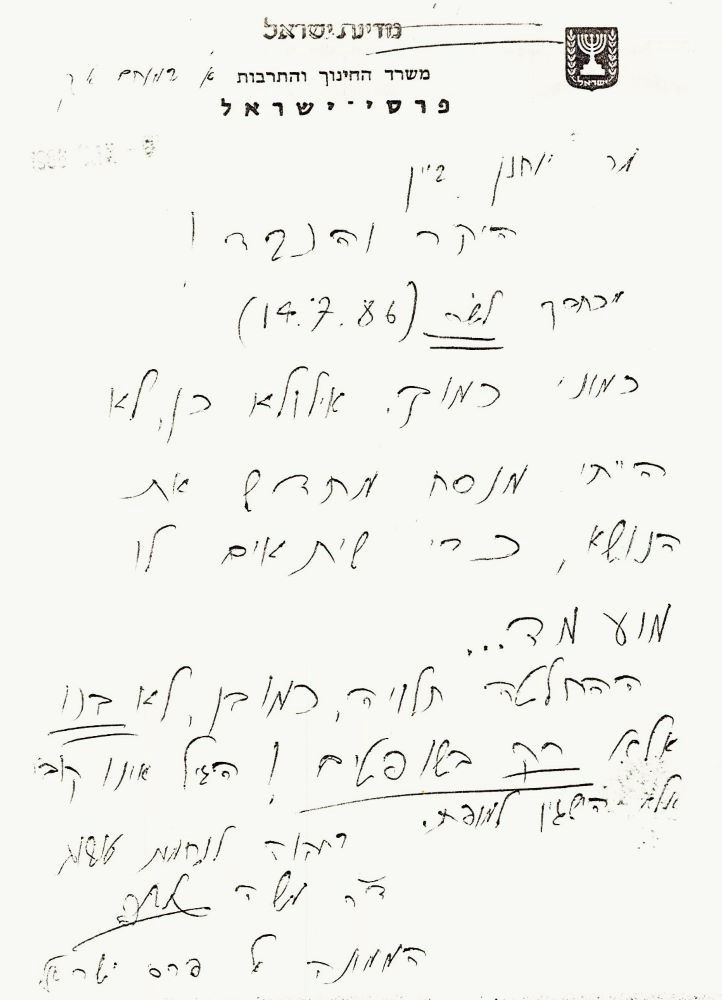 מדינת ישראל
ישראל
משרד החינוך והתרבות
פרסי־ישראל
מר יוחנן ביין
היקר והנכבד!
מכתבך לשה (14.7.86)
כמוני כמוך. אילולא כן, לא
הייתי מנסח מחדש את
הנושא, כדי שיתאים לו
מועמד...
ההחלטה תלויה, כמובן, לא בנו
אלא רק בשופטים! הגיל אינו קובע
אלא הישגין למופת.
ד"ר משה
הממונה על פרס ישראל